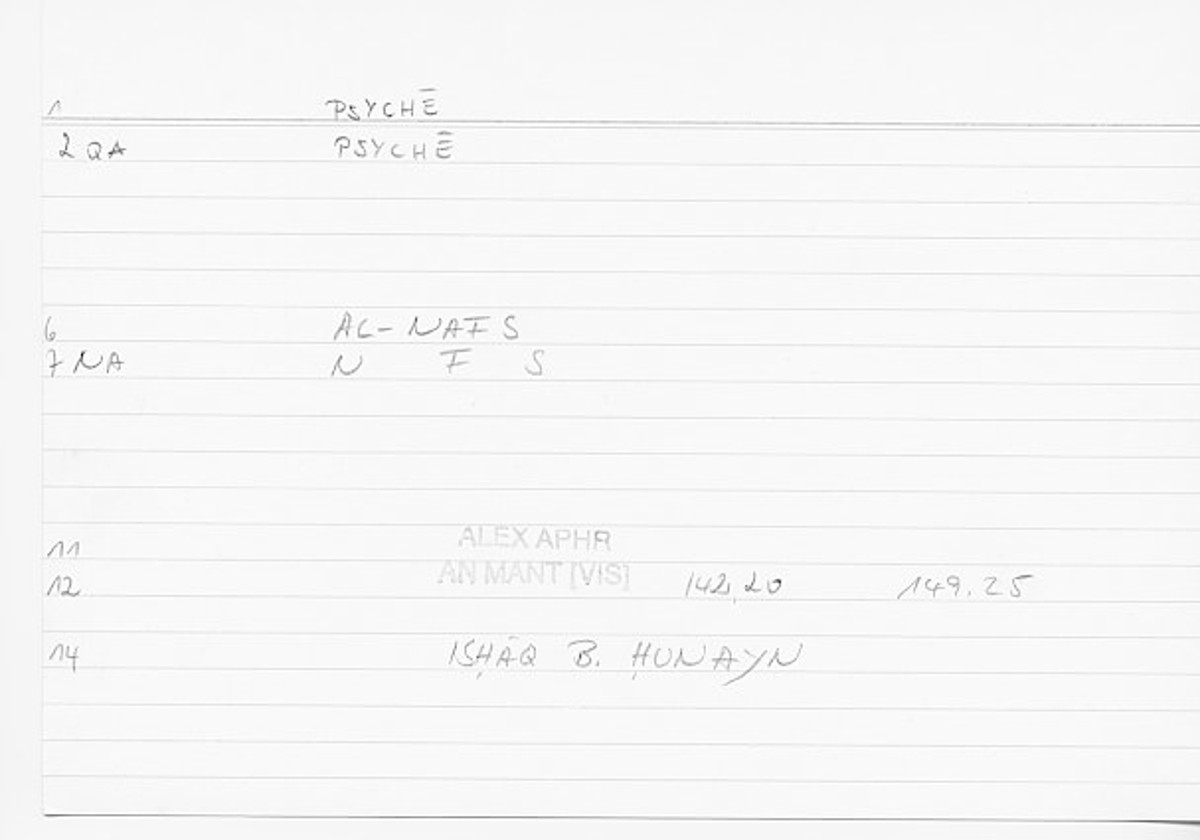 1 PSYCHĒ
2 QA PSYCHĒ
6 AL-NAFS
7 NA N F S
11 ALEX APHR
12 AN MANT [VIS] 142,20 149.25
14 ISḤĀQ B. ḤUNAYN